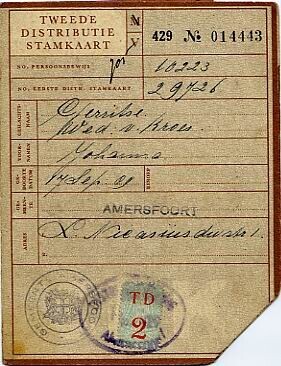 TWEEDE
DISTRIBUTIE
STAMKAART
M
V
429 № 014443
NO. PERSOONSBEWIJS
10223
NO. EERSTE DISTR. STAMKAART
29726
GESLACHTSNAAM
Gerritse
Wed. v. Kroes.
VOORNAMEN
Johanna
GEBOORTEDATUM
17 Sep. 01
GEMEENTE
AMERSFOORT
ADRES
TD
2